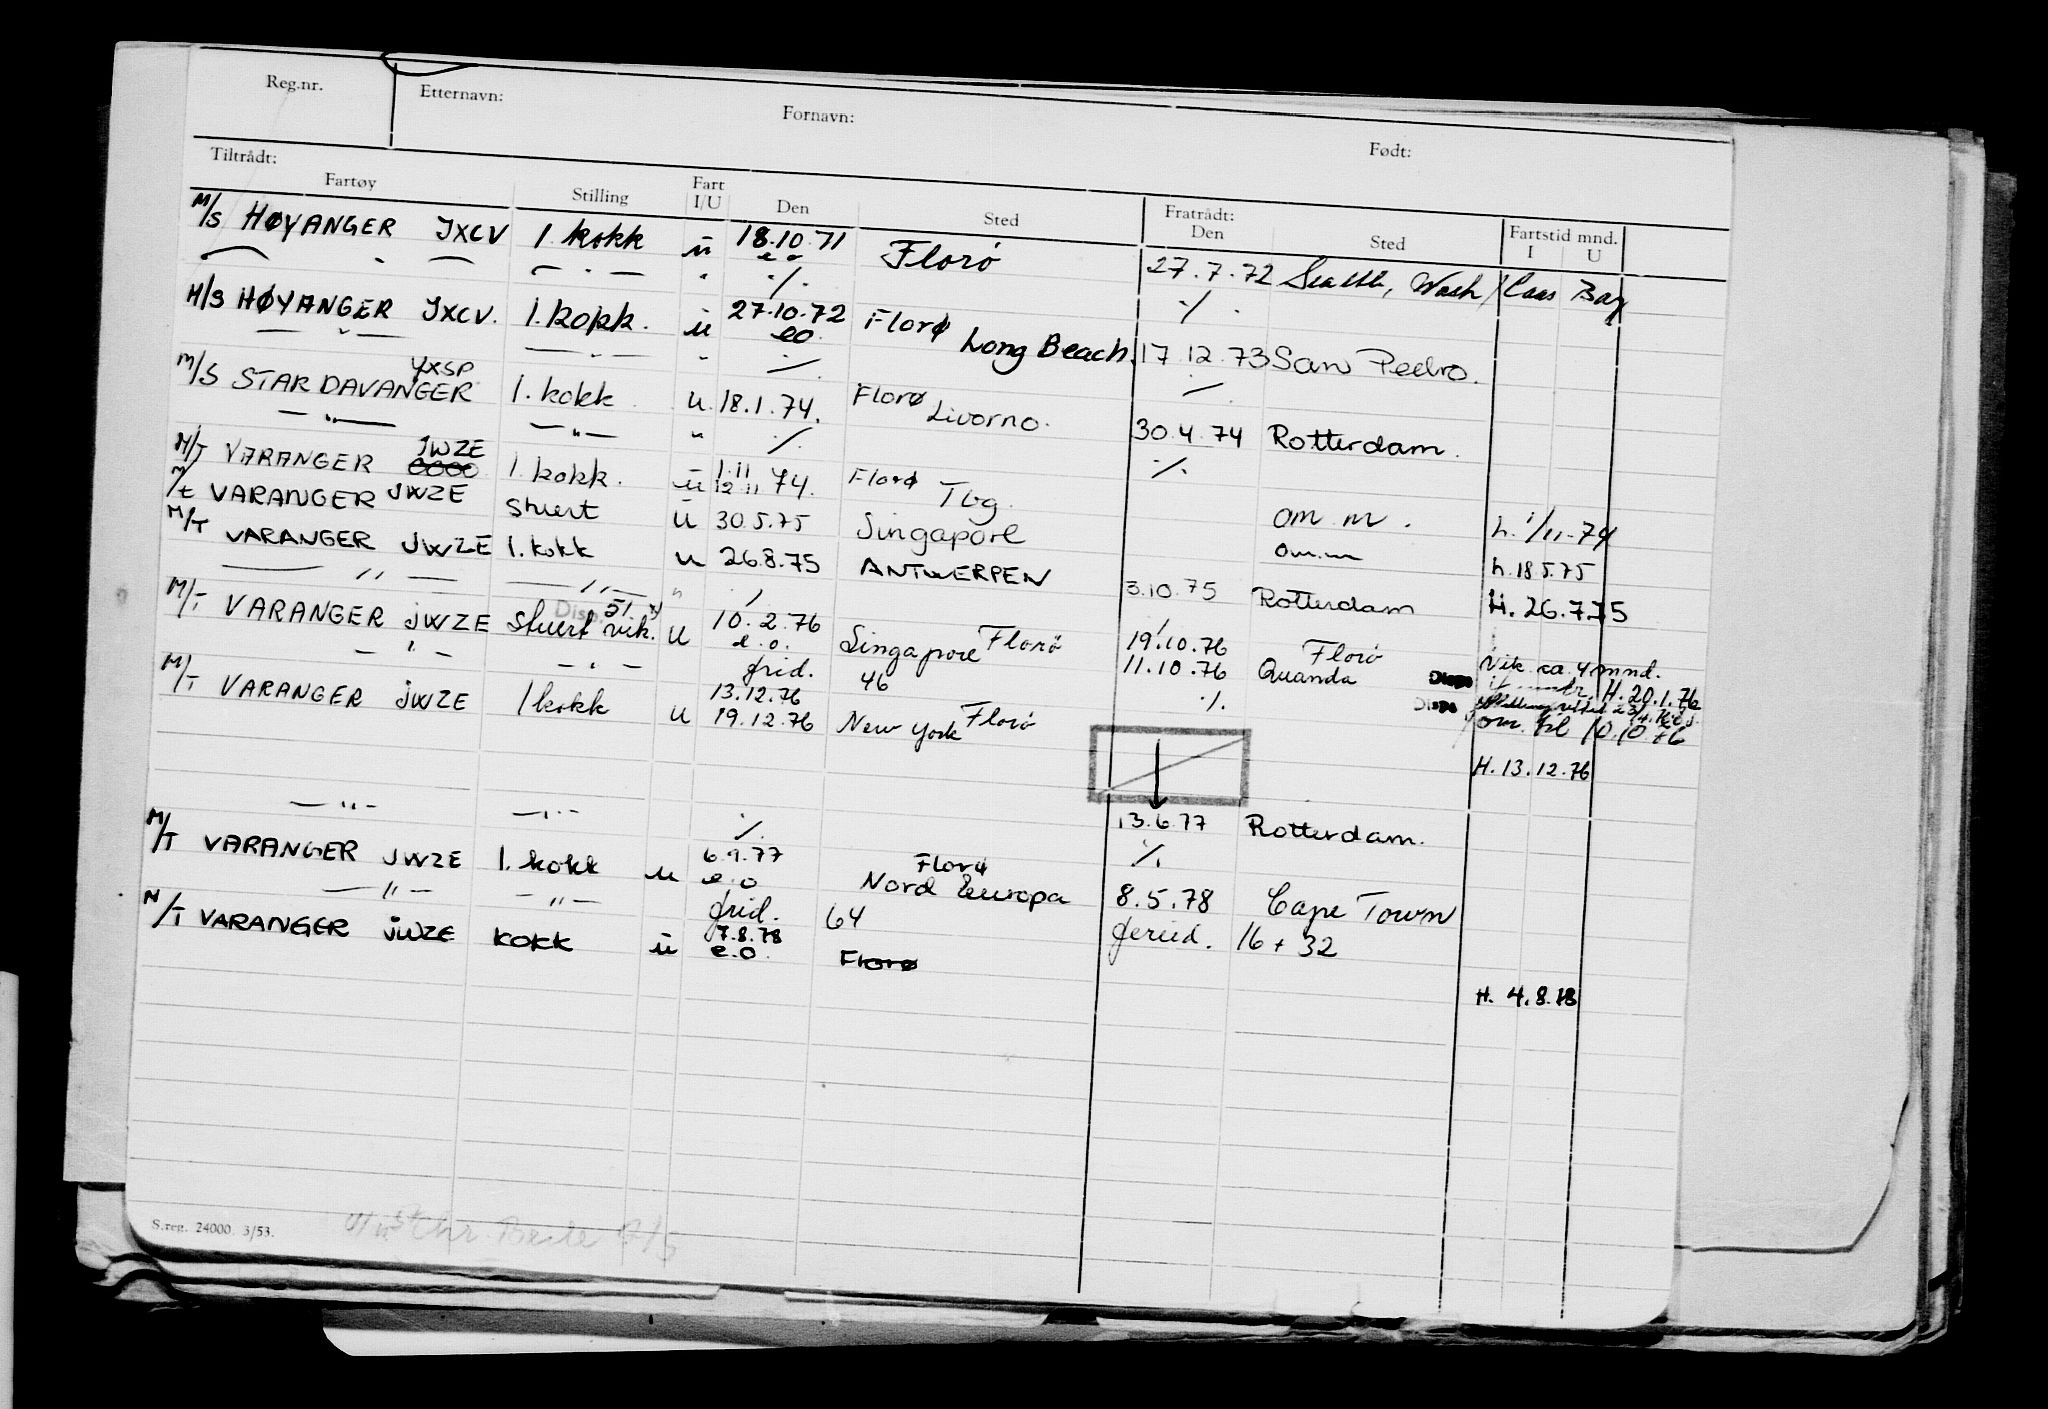 Reg.nr. Etternavn: Fornavn: Født:
Tiltrådt: Fratrådt: Fartstid mnd.
Fartøy Stilling Fart I/U Den Sted Den Sted I U
M/S HØYANGER JXCV 1. kokk u 18.10.71 e o Florø
— " — — " — " ·/. 27.7.72 Seattle, Wash / Coos Bay
M/S HØYANGER JXCV. 1. kokk. u 27.10.72 eo. Florø Long Beach. ·/.
— " — — " — " ·/. 17.12.73 San Pedro.
M/S STAR DAVANGER YXSP 1. kokk u. 18.1.74. Florø Livorno. ·/.
— " — — " — " ·/. 30.4.74 Rotterdam.
M/T VARANGER JWZE 1. kokk. u 1.11 12.11 74. Florø Tbg. ·/.
M/t VARANGER JWZE stuert u 30.5.75 Singapore om m. h. 1/11-74
M/T VARANGER JWZE 1. kokk u 26.8.75 ANTWERPEN om.m h. 18.5.75
— " — — " — " 3.10.75 Rotterdam H. 26.7.75
M/T VARANGER JWZE Stuert vik. U 10.2.76 e.o. Singapore Florø 19.10.76 Florø Vik. ca. 4 mnd.
— " — — " — frid. 46 11.10.76 Quanda Disp H. 20.1.76
M/T VARANGER JWZE 1 kokk u 13.12.76 19.12.76 New York Florø ·/. Disp om. 10.10 76
H. 13.12.76
— " — — " — ·/. 13.6.77 Rotterdam.
M/T VARANGER JWZE 1. kokk u 6.9.77 e.o Florø Nord Europa ·/.
— " — — " — frid. 64 8.5.78 Cape Town
M/T VARANGER JWZE kokk u 7.8.78 e.o. Florø ferieid. 16 + 32
H. 4.8.78
S.reg. 24000. 3/53.